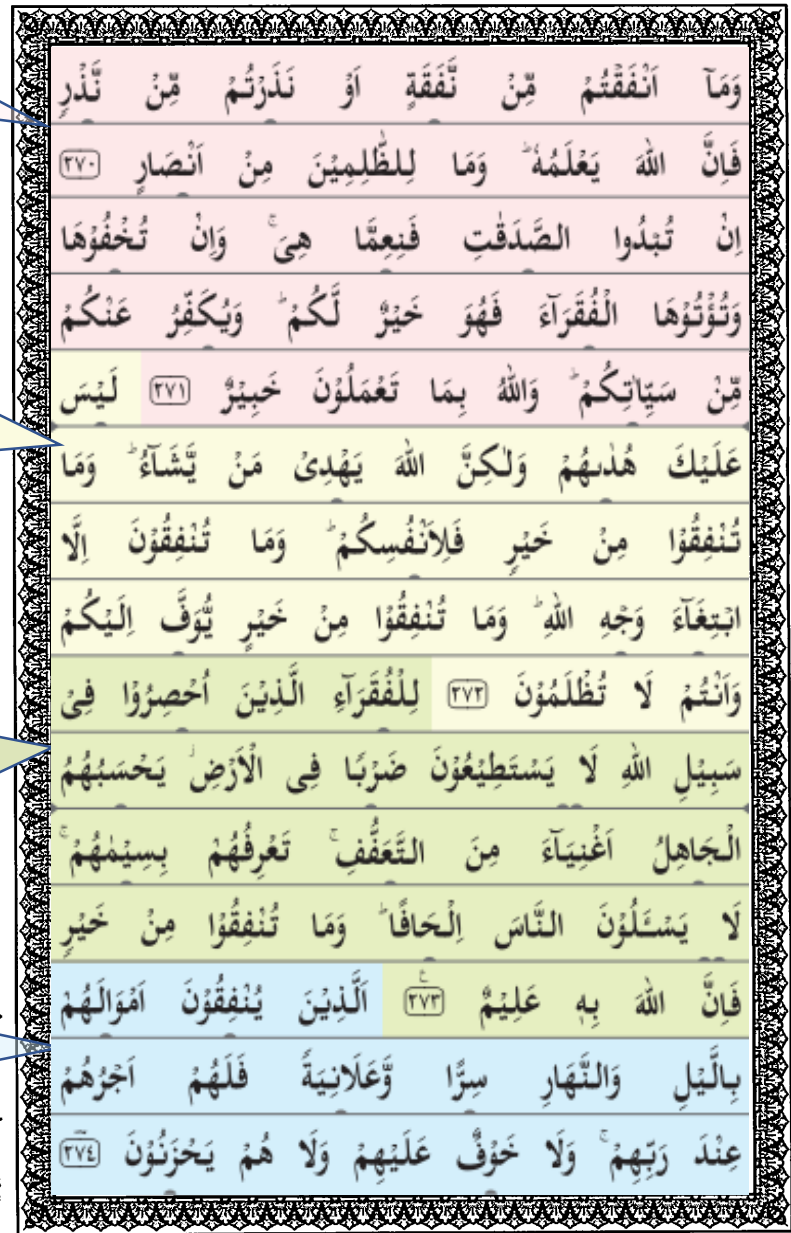 وَمَاۤ اَنْفَقْتُمْ مِّنْ نَّفَقَةٍ اَوْ نَذَرْتُمْ مِّنْ نَّذْرٍ
فَاِنَّ اللّٰهَ يَعْلَمُهٗ ؕ وَمَا لِلظّٰلِمِيْنَ مِنْ اَنْصَارٍ ﴿٢٧٠﴾
اِنْ تُبْدُوا الصَّدَقٰتِ فَنِعِمَّا هِىَ ۚ وَاِنْ تُخْفُوْهَا
وَتُؤْتُوْهَا الْفُقَرَآءَ فَهُوَ خَيْرٌ لَّكُمْ ؕ وَيُكَفِّرُ عَنْكُمْ
مِّنْ سَيِّاٰتِكُمْ ؕ وَاللّٰهُ بِمَا تَعْمَلُوْنَ خَبِيْرٌ ﴿٢٧١﴾ لَيْسَ
عَلَيْكَ هُدٰٮهُمْ وَلٰـكِنَّ اللّٰهَ يَهْدِىْ مَنْ يَّشَآءُ ؕ وَمَا
تُنْفِقُوْا مِنْ خَيْرٍ فَلِاَنْفُسِكُمْ ؕ وَمَا تُنْفِقُوْنَ اِلَّا
ابْتِغَآءَ وَجْهِ اللّٰهِ ؕ وَمَا تُنْفِقُوْا مِنْ خَيْرٍ يُّوَفَّ اِلَيْكُمْ
وَاَنْتُمْ لَا تُظْلَمُوْنَ ﴿٢٧٢﴾ لِلْفُقَرَآءِ الَّذِيْنَ اُحْصِرُوْا فِىْ
سَبِيْلِ اللّٰهِ لَا يَسْتَطِيْعُوْنَ ضَرْبًا فِى الْاَرْضِ ۙ يَحْسَبُهُمُ
الْجَاهِلُ اَغْنِيَآءَ مِنَ التَّعَفُّفِ ۚ تَعْرِفُهُمْ بِسِيْمٰهُمْ ۚ
لَا يَسْـَٔـلُوْنَ النَّاسَ اِلْحَافًا ؕ وَمَا تُنْفِقُوْا مِنْ خَيْرٍ
فَاِنَّ اللّٰهَ بِهٖ عَلِيْمٌ ﴿٢٧٣﴾ اَلَّذِيْنَ يُنْفِقُوْنَ اَمْوَالَهُمْ
بِالَّيْلِ وَالنَّهَارِ سِرًّا وَّعَلَانِيَةً فَلَهُمْ اَجْرُهُمْ
عِنْدَ رَبِّهِمْ ۚ وَلَا خَوْفٌ عَلَيْهِمْ وَلَا هُمْ يَحْزَنُوْنَ ﴿٢٧٤﴾